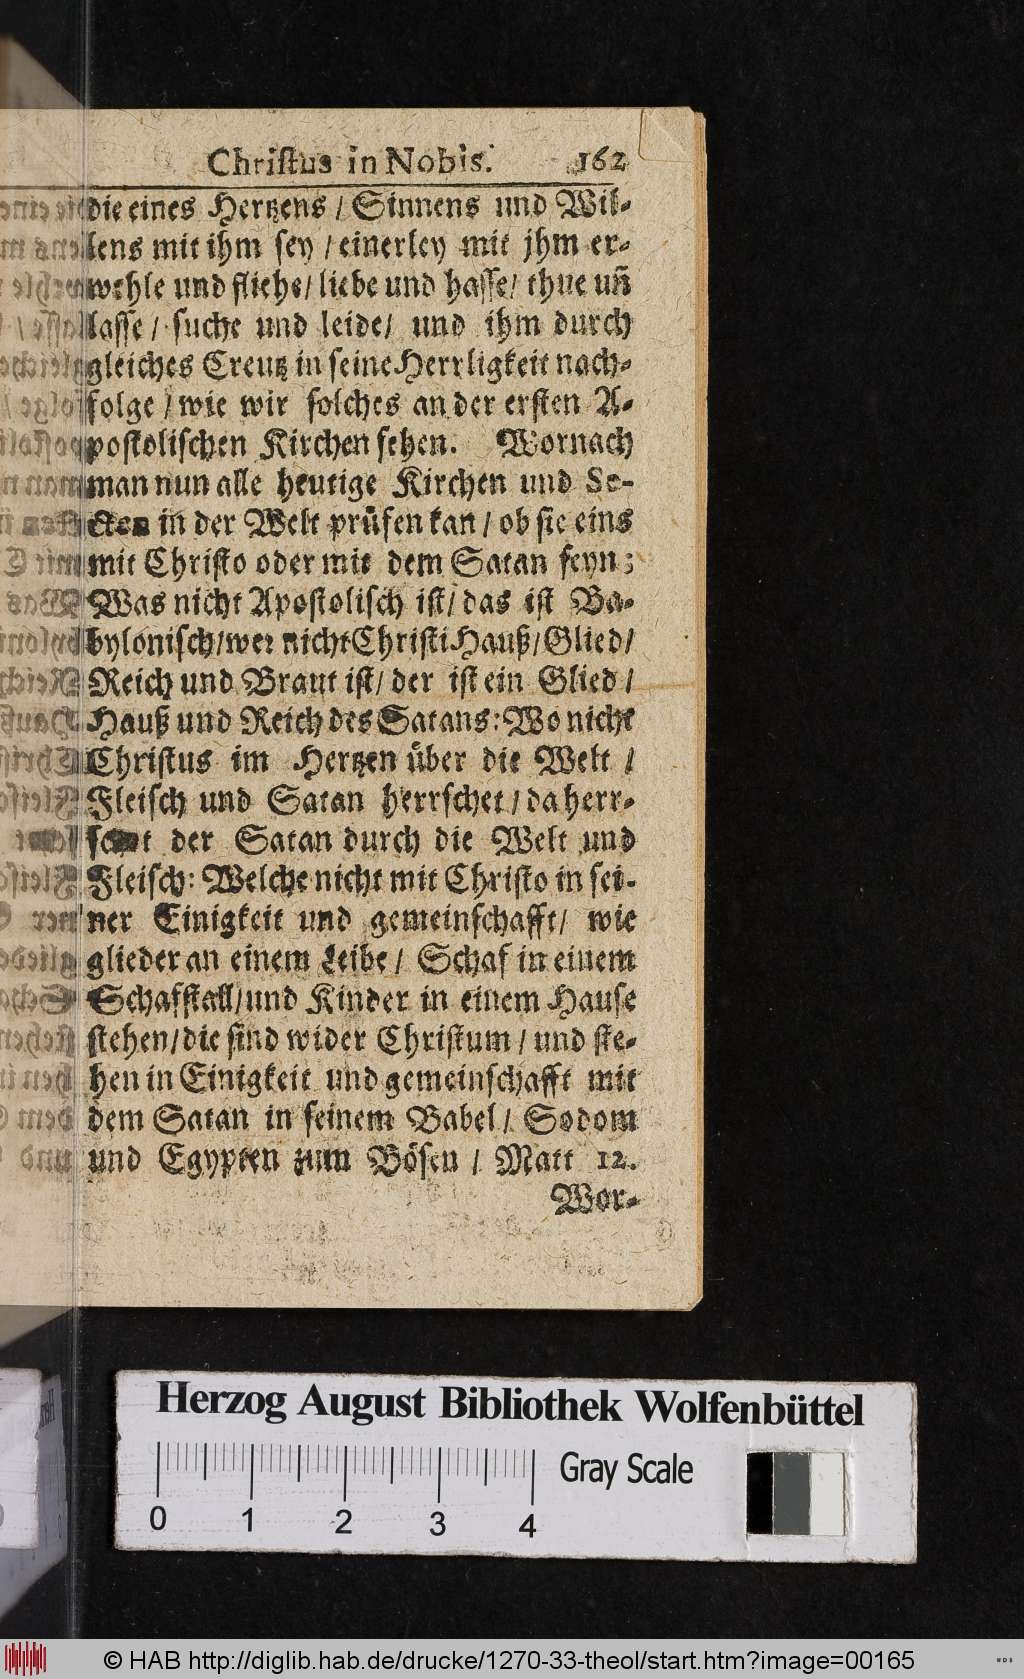 Chriſtus in Nobis. 162
die eines Hertzens / Sinnens und Wil-
lens mit ihm ſey / einerley mit jhm er-
wehle und fliehe / liebe und haſſe / thue uñ
laſſe / ſuche und leide / und ihm durch
gleiches Creutz in ſeine Herrligkeit nach-
folge / wie wir ſolches an der erſten A-
poſtoliſchen Kirchen ſehen. Wornach
man nun alle heutige Kirchen und Se-
cten in der Welt prüfen kan / ob ſie eins
mit Chriſto oder mit dem Satan ſeyn:
Was nicht Apoſtoliſch iſt / das iſt Ba-
byloniſch / wer nicht Chriſti Hauß / Glied /
Reich und Braut iſt / der iſt ein Glied /
Hauß und Reich des Satans: Wo nicht
Chriſtus im Hertzen über die Welt /
Fleiſch und Satan herrſchet / da herr-
ſchet der Satan durch die Welt und
Fleiſch: Welche nicht mit Chriſto in ſei-
ner Einigkeit und gemeinſchafft / wie
glieder an einem Leibe / Schaf in einem
Schafſtall / und Kinder in einem Hauſe
ſtehen / die ſind wider Chriſtum / und ſte-
hen in Einigkeit und gemeinſchafft mit
dem Satan in ſeinem Babel / Sodom
und Egypten zum Böſen / Matt 12.
Wor-
Herzog August Bibliothek Wolfenbüttel
Gray Scale
0 1 2 3 4
© HAB http://diglib.hab.de/drucke/1270-33-theol/start.htm?image=00165